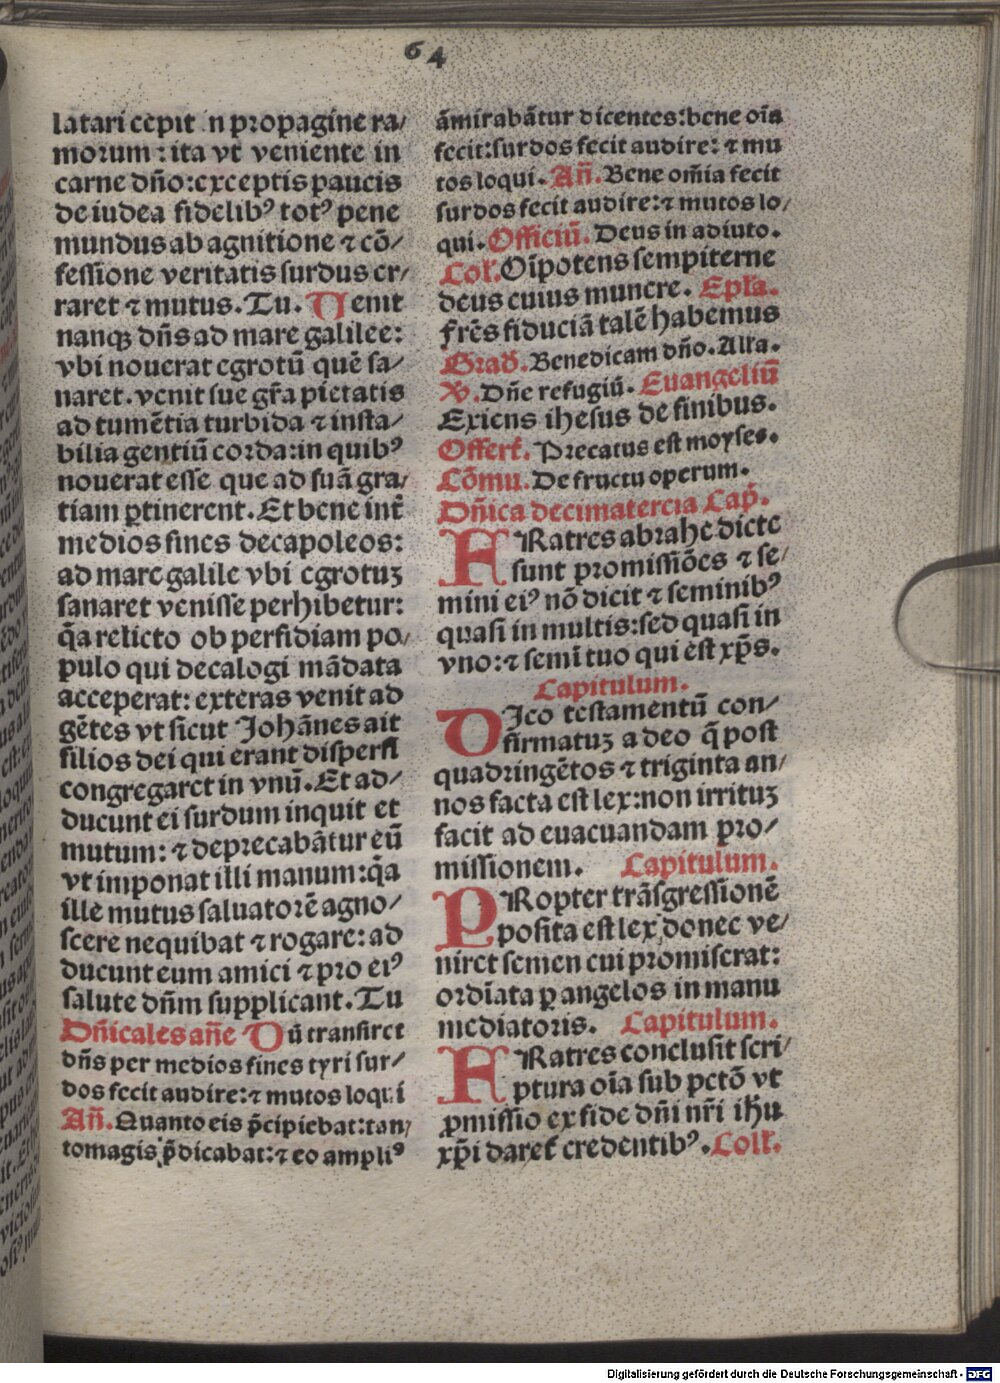 64
latari cepit in propagine ra/
morum: ita vt veniente in
carne dño: exceptis paucis
de iudea fidelibꝰ totꝰ pene
mundus ab agnitione ⁊ cō/
fessione veritatis surdus er/
raret ⁊ mutus. Tu. Uenit
nanqꝫ dñs ad mare galilee:
vbi nouerat egrotū quē sa/
naret. venit sue gr̄a pietatis
ad tumētia turbida ⁊ insta/
bilia gentiū corda: in quibꝰ
nouerat esse que ad suā gra/
tiam ꝑtinerent. Et bene int̄
medios fines decapoleos:
ad mare galile vbi egrotuꝫ
sanaret venisse perhibetur:
q̄a relicto ob perfidiam po/
pulo qui decalogi mādata
acceperat: exteras venit ad
gētes vt sicut Johānes ait
filios dei qui erant dispersi
congregaret in vnū. Et ad/
ducunt ei surdum inquit et
mutum: ⁊ deprecabātur eū
vt imponat illi manum: q̄a
ille mutus saluatorē agno/
scere nequibat ⁊ rogare: ad
ducunt eum amici ⁊ pro eiꝰ
salute dñm supplicant. Tu
Dñicales añe Dū transiret
dñs per medios fines tyri sur/
dos fecit audire: ⁊ mutos loqui
Añ. Quanto eis p̄cipiebat: tan/
tomagis p̄dicabat: ⁊ eo ampliꝰ
āmirabātur dicentes: bene oīa
fecit: surdos fecit audire: ⁊ mu
tos loqui. Añ. Bene om̄ia fecit
surdos fecit audire: ⁊ mutos lo/
qui. Officiū. Deus in adiuto.
Col̄. Oīpotens sempiterne
deus cuius munere. Epl̄a.
Frēs fiduciā talē habemus
Grad̄. Benedicam dño. Alla.
V̄. Dñe refugiū. Euangeliū
Exiens ihesus de finibus.
Offert̄. Precatus est moyses.
Cōmu. De fructu operum.
Dñica decimatercia Cap̄.
FRatres abrahe dicte
sunt promissiōes ⁊ se/
mini eiꝰ nō dicit ⁊ seminibꝰ
quasi in multis: sed quasi in
vno: ⁊ semī tuo qui est xp̄s.
Capitulum.
DIco testamentū con/
firmatuꝫ a deo q̄ post
quadringētos ⁊ triginta an/
nos facta est lex: non irrituꝫ
facit ad euacuandam pro/
missionem. Capitulum.
PRopter trāsgressionē
posita est lex, donec ve/
niret semen cui promiserat:
ordīata ꝑ angelos in manu
mediatoris. Capitulum.
FRatres conclusit scri/
ptura oīa sub pctō vt
ꝓmissio ex fide dñi nr̄i ih̄u
xp̄i daret̄ credentibꝰ. Coll̄.
Digitalisierung gefördert durch die Deutsche Forschungsgemeinschaft - DFG